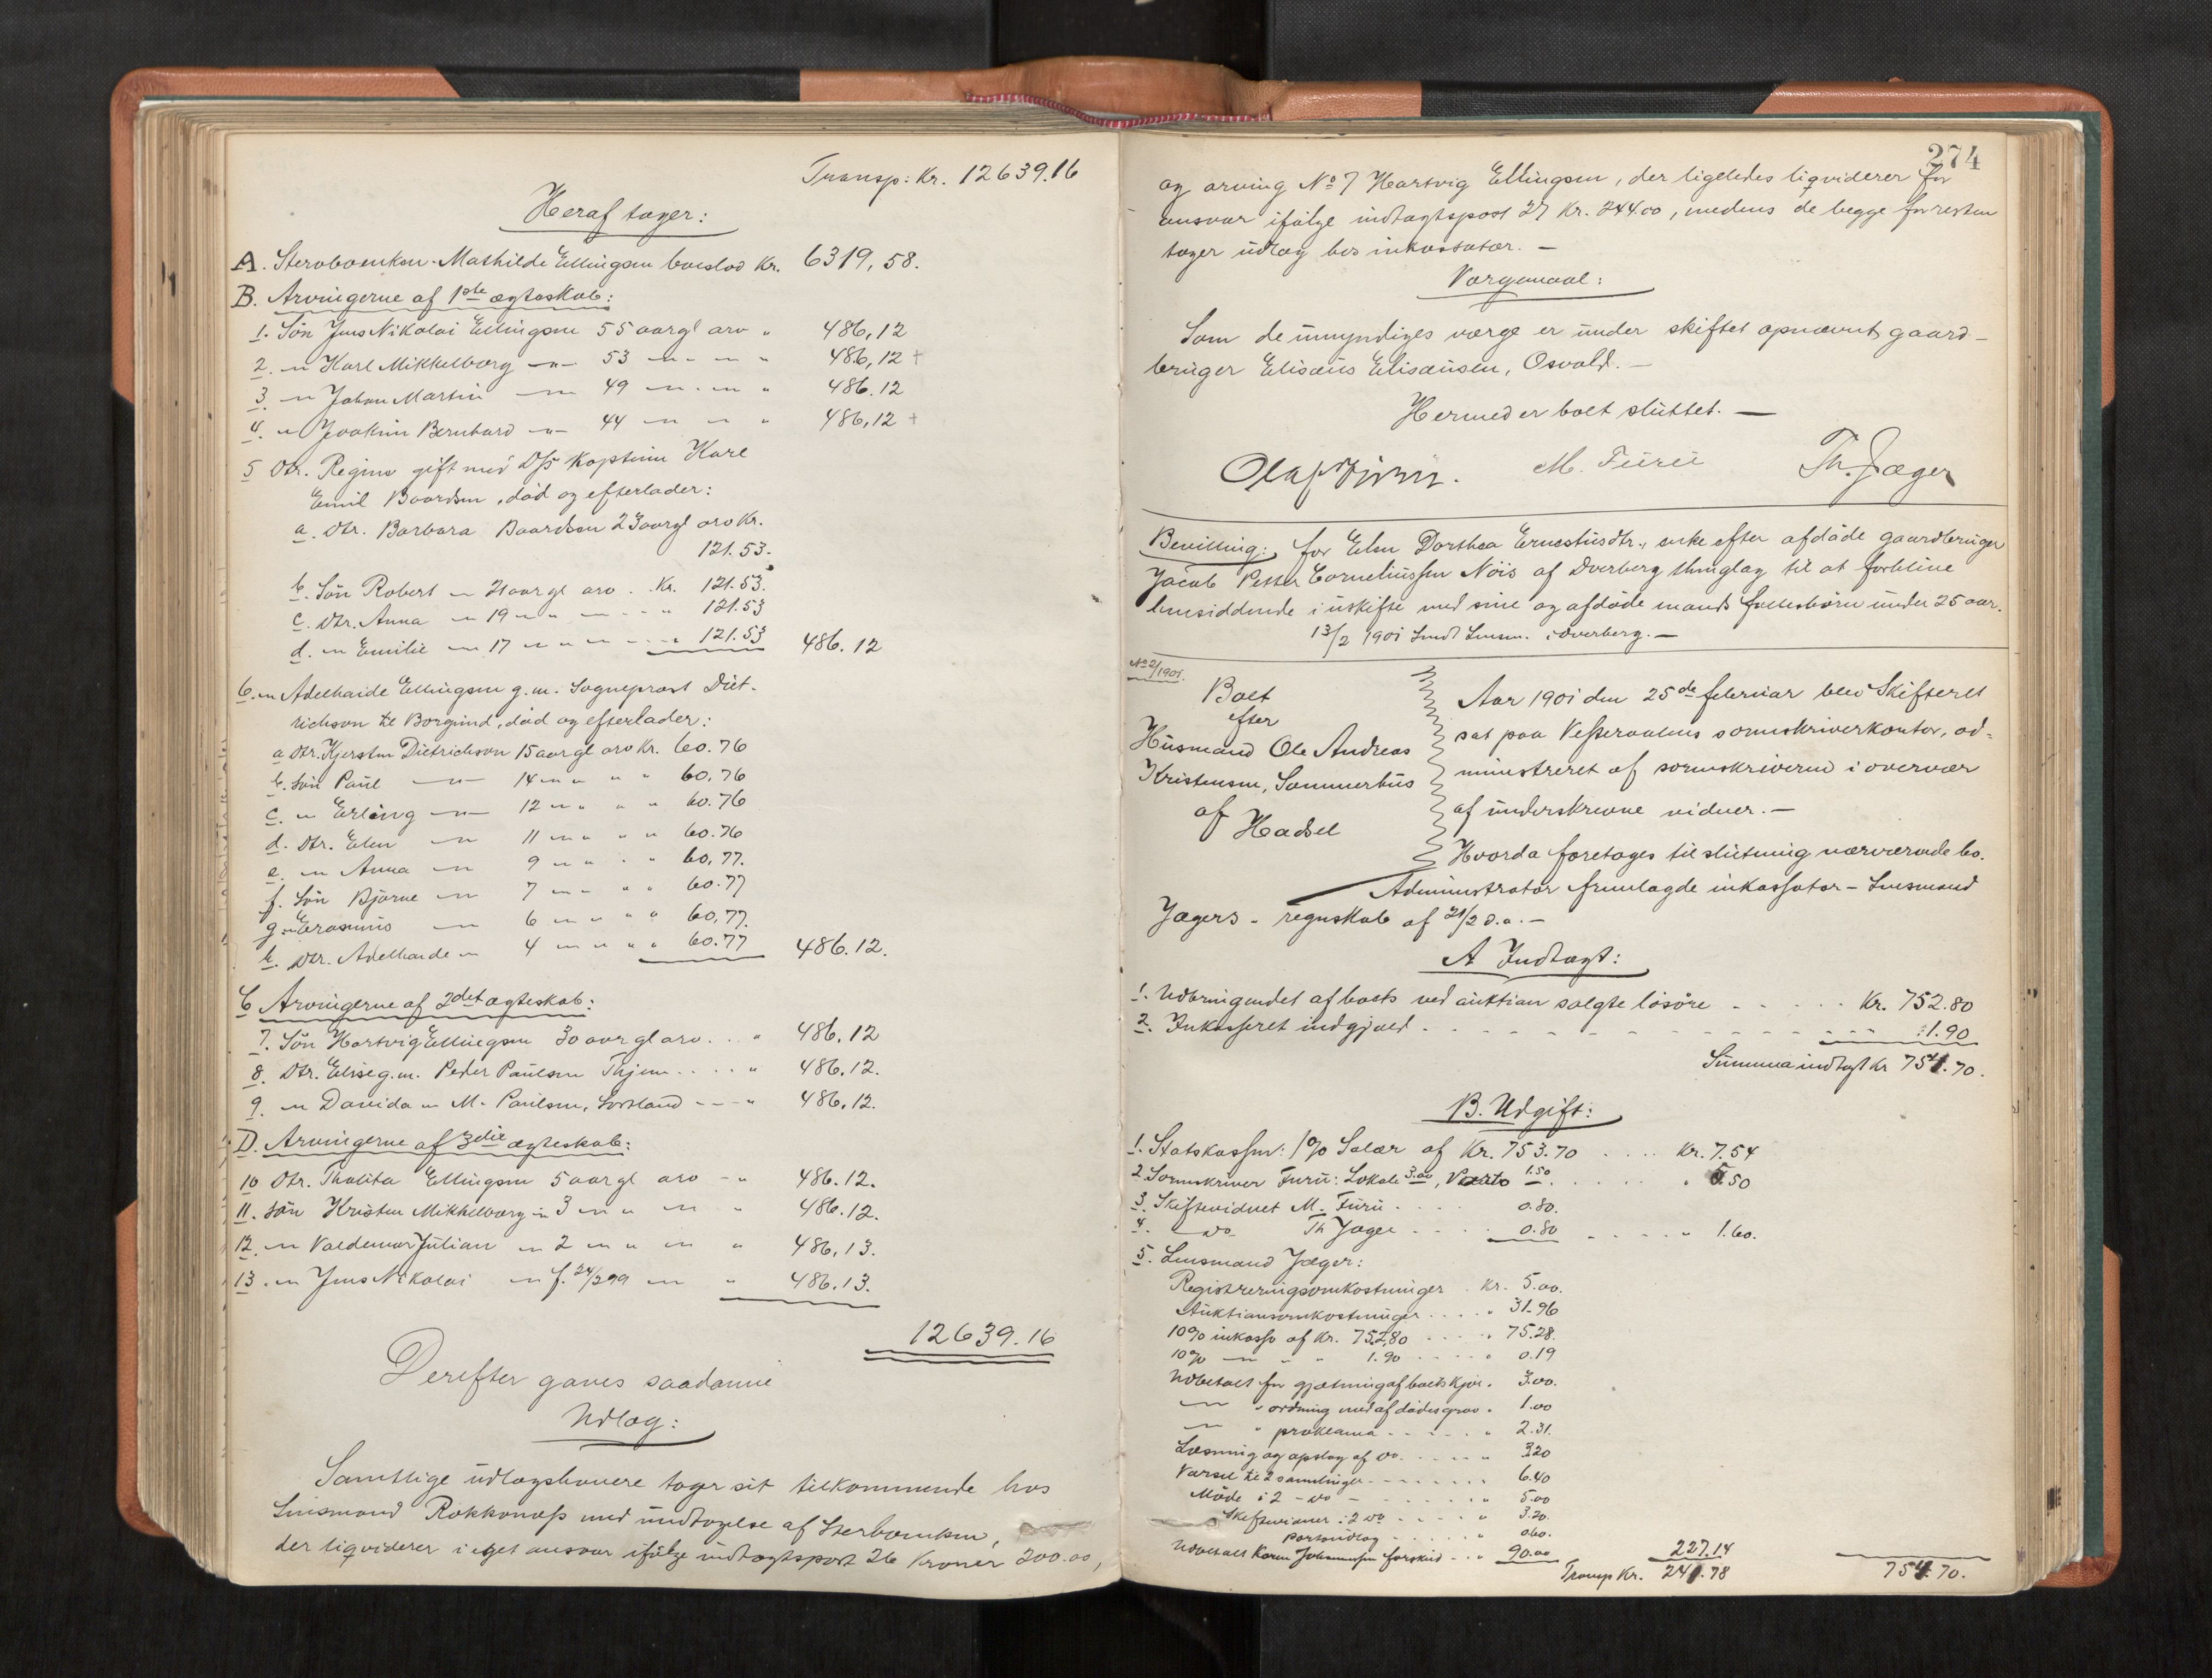 Transp: Kr. 12639.16
Heraf tager:
A. Sterboenken Mathilde Ellingsen boeslod Kr. 6319,58.
B. Arvingerne af 1ste ægteskab:
1. Sön Jens Nikolai Ellingsen 55 aar gl arv " 486,12
2. " Karl Mikkelborg -"- 53 -"- " " 486,12 +
3. " Johan Martin -"- 49 -"- " " 486.12
4. " Joakim Bernhard -"- 44 " " " 486,12 +
5 Dtr. Regine gift med D/S Kaptein Karl
Emil Baardsen, död og efterlader:
a. Dtr. Barbara Baardsen 23 aar gl arv Kr.
121.53.
b. Sön Robert " 21 aar gl arv . Kr. 121.53.
c. Dtr. Anna " 19 " " " - - " 121.53
d. " Emilie " 17 " " " - - " 121.53 486.12
6. " Adelhaide Ellingsen g.m. Sogneprest Diet-
richson til Borgund, död og efterlader:
a Dtr. Kjersten Dietrichson 15 aar gl arv Kr. 60.76
b. Sön Paul -"- 14 " " " " 60.76
c. " Erling -"- 12 " " " " 60.76
d. Dtr. Elen " 11 " " " " 60.76
e. " Anna " 9 " " " " 60,77.
f. Sön Bjarne " 7 " " " " 60.77
g. " Erasmus " 6 " " " " 60,77.
h. Dtr. Adelhaide " 4 " " " " 60.77 486.12.
C Arvingerne af 2det ægteskab:
7. Sön Hartvig Ellingsen 30 aar gl arv . . " 486,12
8. Dtr. Elise g.m. Peder Paulsen Thjem . . . . " 486.12.
9. " Davida " M. Paulsen, Sortland - - - " 486,12.
D. Arvingerne af 3die ægteskab:
10 Dtr. Thalita Ellingsen 5 aar gl arv - " 486.12.
11. Sön Kristen Mikkelborg " 3 " " " " 486.12.
12. " Valdemar Julian " 2 " " " " 486,13.
13. " Jens Nikolai " f. 24/2 99 " " 486.13.
12639.16
Derefter gaves saadanne
Udlæg:
Samtlige udlægshavere tager sit tilkommende hos
Lensmand Rokkonæss med undtagelse af Sterboenken,
der liqviderer i eget ansvar ifölge indtægtspost 26 Kroner 200.00,
274
og arving No 7 Hartvig Ellingsen, der ligeledes liqviderer for
ansvar ifölge indtægtspost 27 Kr. 244.00, medens de begge forresten
tager udlæg hos inkassator. —
Værgemaal:
Som de umyndiges værge er under skiftet opnævnt gaard-
bruger Elisæus Elisæusen, Osvold. —
Hermed er boet sluttet. —
M. Furu Th. Jæger
Bevilling: for Elen Dorthea Ernestusdtr., enke efter afdöde gaardbruger
Jacob Petter Corneliussen Nöis af Dverberg thinglag til at forblive
hensiddende i uskifte med sine og afdöde mands fællesbörn under 25 aar.
13/2 1901 Sendt Lensm. i Dverberg. —
No 2/1901.
Boet
efter
Husmand Ole Andreas
Kristensen, Sommerhus
af Hadsel
Aar 1901 den 25de februar blev Skifteret
sat paa Vesteraalens sorenskriverkontor, ad-
ministreret af sorenskriveren i overvær
af underskrevne vidner. —
Hvorda foretoges til slutning nærværende bo.
Administrator fremlagde inkassator - Lensmand
Jægers - regnskab af 21/2 d.a. —
A Indtægt:
1. Udbringendet af boets ved auktion solgte lösöre - - - - Kr. 752.80
2. Inkasseret indgjæld - - - - - - - - - - " 1.90
Summa indtægt Kr 754.70.
B. Udgift:
1. Statskassen: 1% Salær af Kr. 753.70 . . . . Kr. 7.54
2. Sorenskriver Furu: Lokale 3.00, 1.50 . . . . . " 5.50
3. Skiftevidnet M. Furu . . . . 0.80.
4. do Th Jæger . . . . 0.80 - - - - " 1.60.
5. Lensmand Jæger:
Registreringsomkostninger . Kr. 5.00.
Auktionsomkostninger . . . . " 31.96
10% inkasso af Kr. 752,80 . . . . " 75.28.
10% -"- " " 1.90 . . . . " 0.19
Udbetalt for gjætning af boets kjör . 3.00.
-"- " ordning med afdödes grav . 1.00
-"- " proklama - - - - - " 2.31.
Læsning og opslag af do. . . . . " 3.20
Varsel til 2 samlinger - - - - - - 6.40
Möde i 2 - do - - - - - - " 5.00
Skiftevidner i 2 do - - - - " 3.20.
Portoudlæg - - - - - " 0.60.
Udbetalt Karen Johannessen forskud - - " 90.00 227.14
Transp Kr. 241.78 754.70.